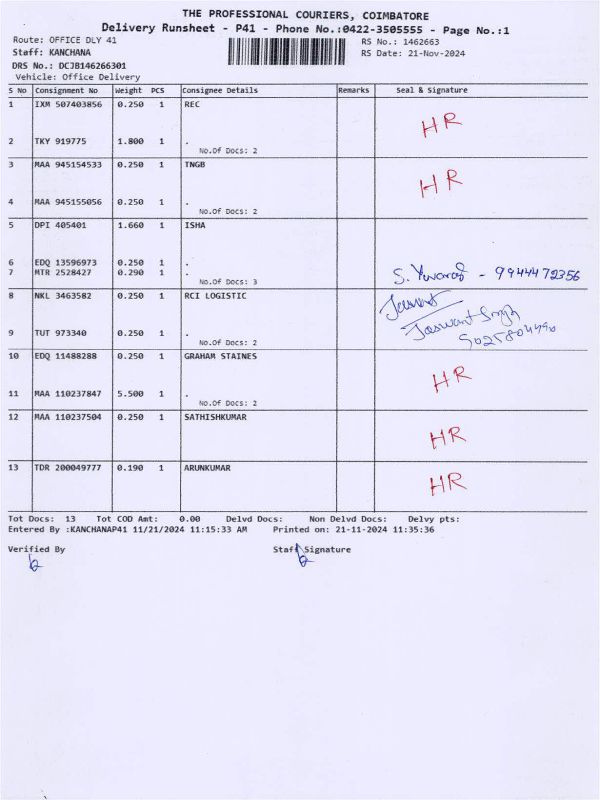 THE PROFESSIONAL COURIERS, COIMBATORE
Delivery Runsheet - P41 - Phone No.:0422-3505555 - Page No.:1
Route: OFFICE DLY 41
RS No.: 1462663
Staff: KANCHANA
RS Date: 21-Nov-2024
DRS No.: DCJB146266301
Vehicle: Office Delivery
S No Consignment No Weight PCS Consignee Details Remarks Seal & Signature
1 IXM 507403856 0.250 1 REC
HR
2 TKY 919775 1.800 1 .
No.Of Docs: 2
3 MAA 945154533 0.250 1 TNGB
HR
4 MAA 945155056 0.250 1 .
No.Of Docs: 2
5 DPI 405401 1.660 1 ISHA
6 EDQ 13596973 0.250 1 .
7 MTR 2528427 0.290 1 .
S. Yuvaraj - 9944472356
No.Of Docs: 3
8 NKL 3463582 0.250 1 RCI LOGISTIC
Jaswant Singh
9 TUT 973340 0.250 1 .
No.Of Docs: 2
10 EDQ 11488288 0.250 1 GRAHAM STAINES
HR
11 MAA 110237847 5.500 1 .
No.Of Docs: 2
12 MAA 110237504 0.250 1 SATHISHKUMAR
HR
13 TDR 200049777 0.190 1 ARUNKUMAR
HR
Tot Docs: 13 Tot COD Amt: 0.00 Delvd Docs: Non Delvd Docs: Delvy pts:
Entered By :KANCHANAP41 11/21/2024 11:15:33 AM Printed on: 21-11-2024 11:35:36
Verified By Staff Signature